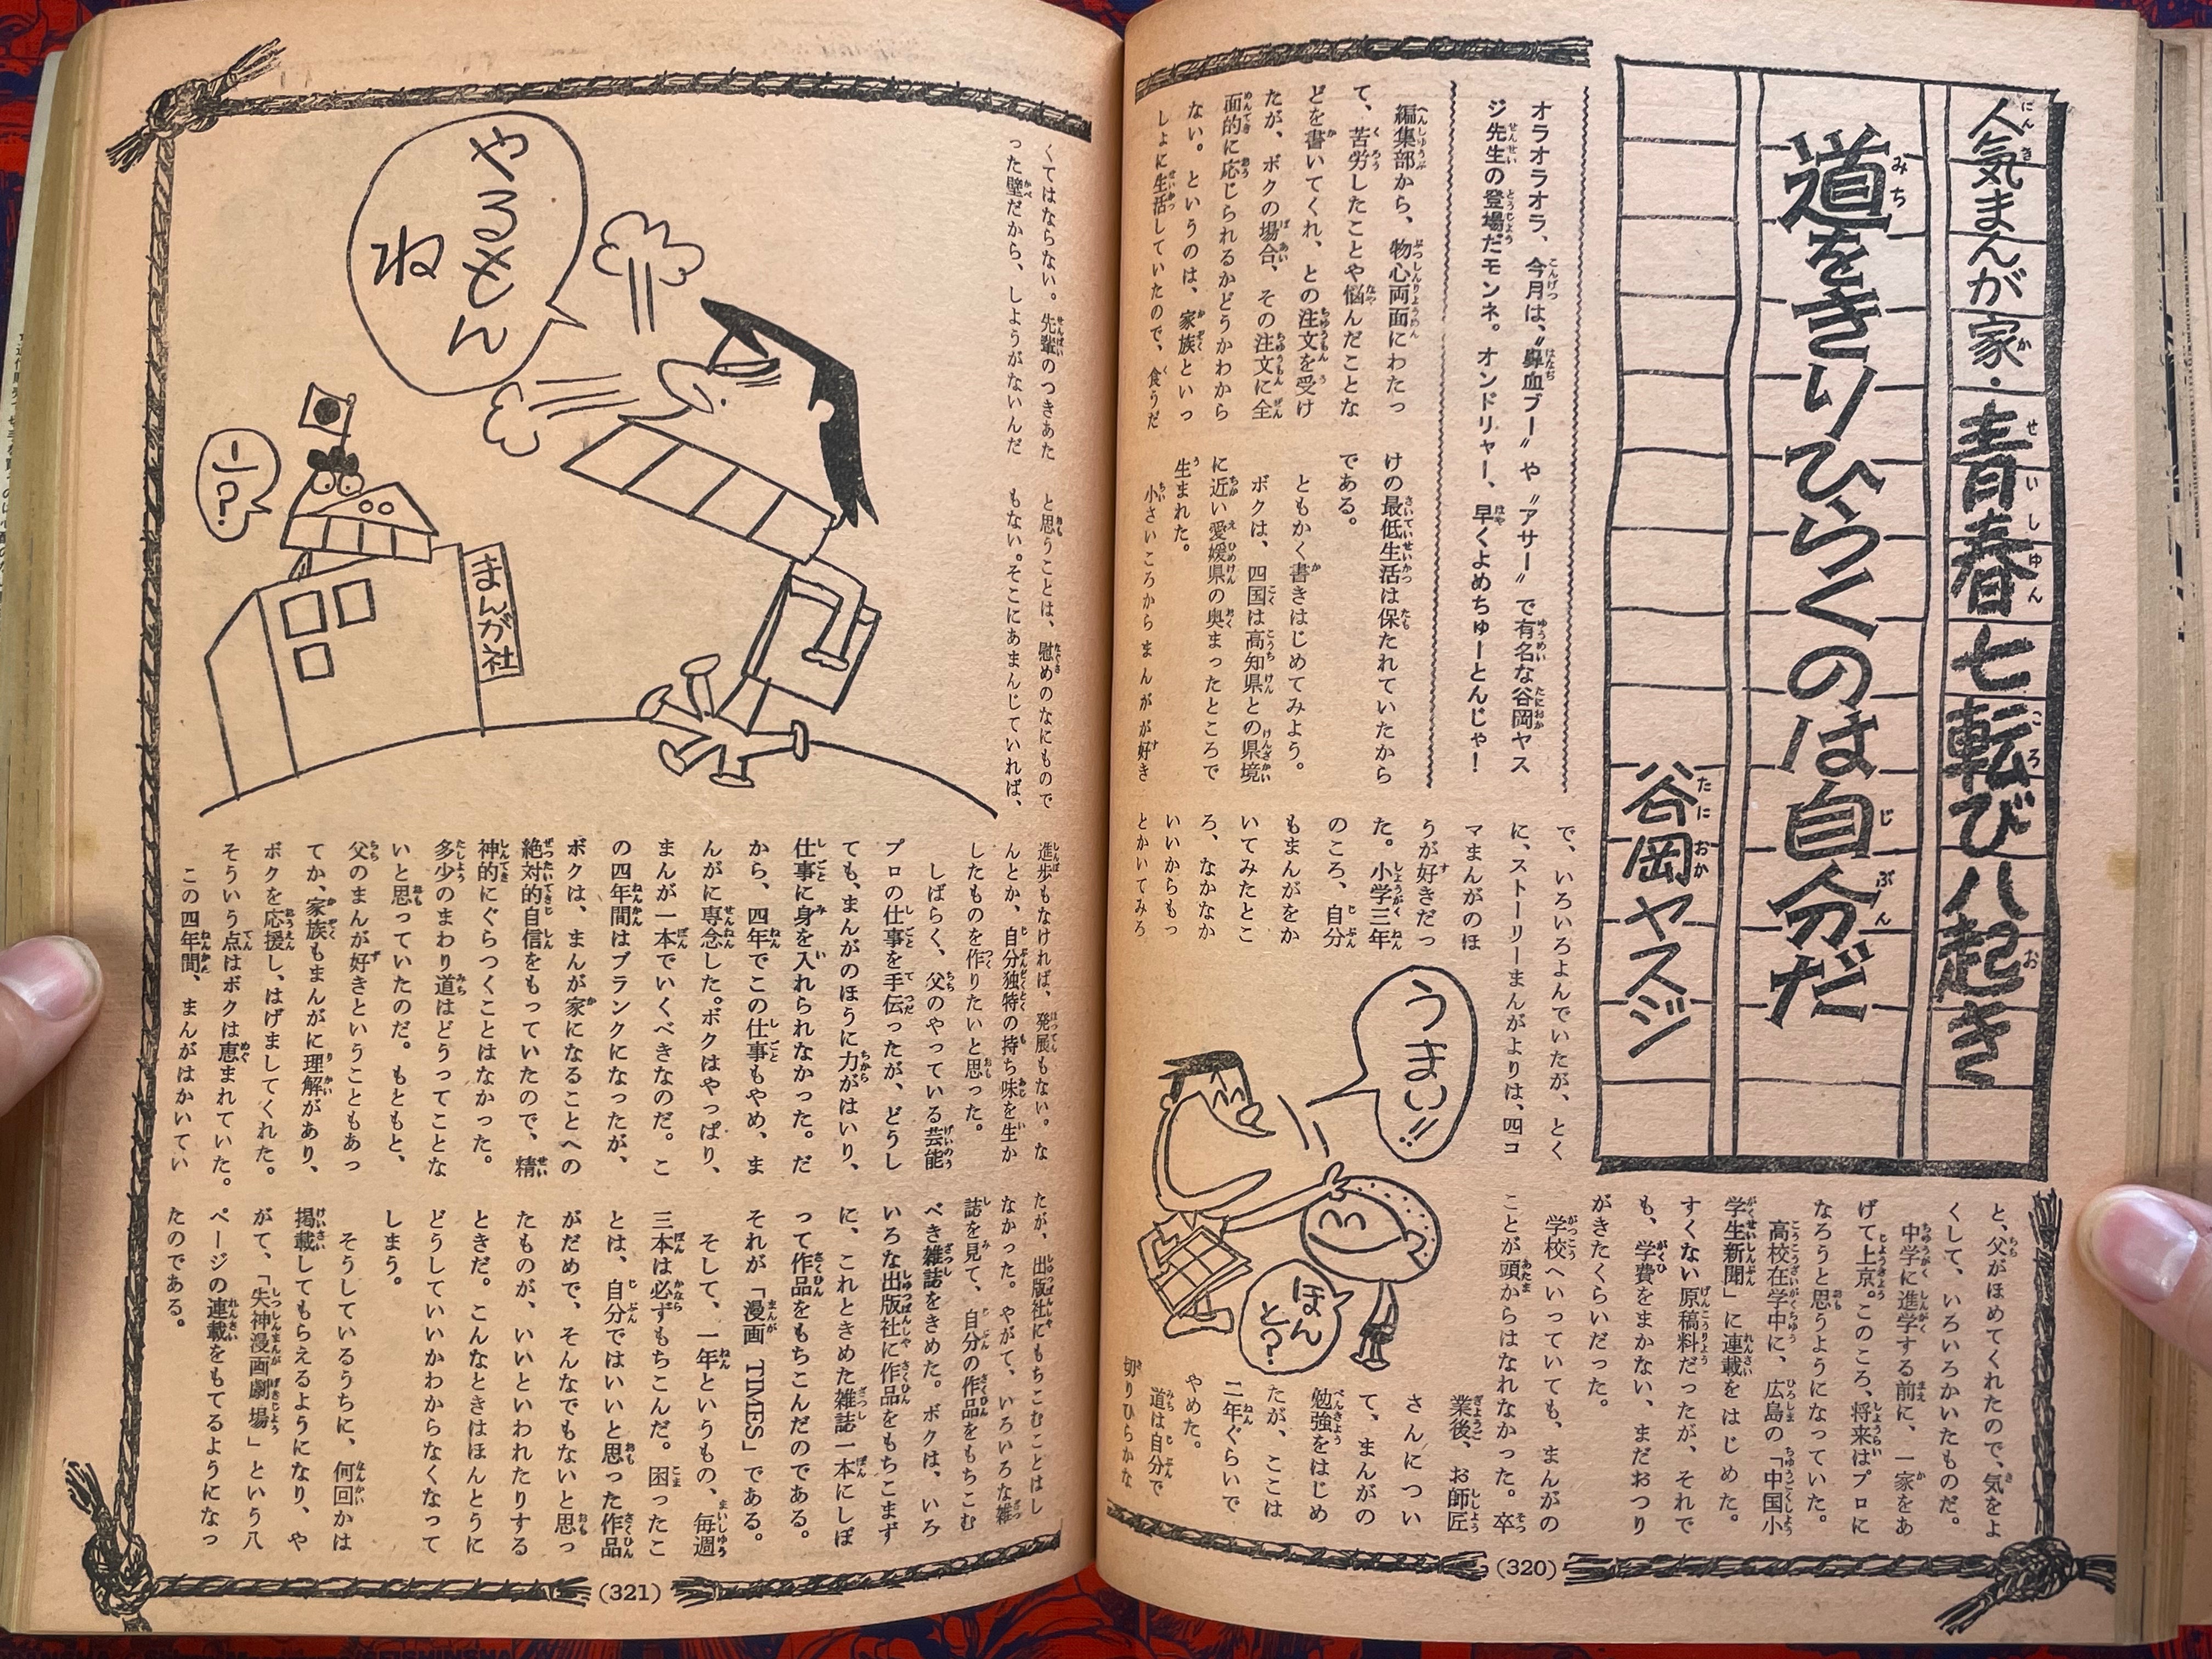 人気まんが家・青春七転び八起き
道をきりひらくのは自分だ
谷岡ヤスジ
オラオラオラ、今月は、〝鼻血ブー〟や〝アサー〟で有名な谷岡ヤス
ジ先生の登場だモンネ。オンドリャー、早くよめちゅーとんじゃ！
編集部から、物心両面にわたっ
て、苦労したことや悩んだことな
どを書いてくれ、との注文を受け
たが、ボクの場合、その注文に全
面的に応じられるかどうかわから
ない。というのは、家族といっ
しょに生活していたので、食うだ
けの最低生活は保たれていたから
である。
ともかく書きはじめてみよう。
ボクは、四国は高知県との県境
に近い愛媛県の奥まったところで
生まれた。
小さいころからまんがが好き
で、いろいろよんでいたが、とく
に、ストーリーまんがよりは、四コ
ママまんがのほ
うが好きだっ
た。小学三年
のころ、自分
もまんがをか
いてみたとこ
ろ、なかなか
いいからもっ
とかいてみろ
と、父がほめてくれたので、気をよ
くして、いろいろかいたものだ。
中学に進学する前に、一家をあ
げて上京。このころ、将来はプロに
なろうと思うようになっていた。
高校在学中に、広島の「中国小
学生新聞」に連載をはじめた。
すくない原稿料だったが、それで
も、学費をまかない、まだおつり
がきたくらいだった。
学校へいっていても、まんがの
ことが頭からはなれなかった。卒
業後、お師匠
さんについ
て、まんがの
勉強をはじめ
たが、ここは
二年ぐらいで
やめた。
道は自分で
切りひらかな
うまい!!
ほんと？
(320)
くてはならない。先輩のつきあた
った壁だから、しようがないんだ
と思うことは、慰めのなにもので
もない。そこにあまんじていれば、
進歩もなければ、発展もない。な
んとか、自分独特の持ち味を生か
したものを作りたいと思った。
しばらく、父のやっている芸能
プロの仕事を手伝ったが、どうし
ても、まんがのほうに力がはいり、
仕事に身を入れられなかった。だ
から、四年でこの仕事もやめ、ま
んがに専念した。ボクはやっぱり、
まんが一本でいくべきなのだ。こ
の四年間はブランクになったが、
ボクは、まんが家になることへの
絶対的自信をもっていたので、精
神的にぐらつくことはなかった。
多少のまわり道はどうってことな
いと思っていたのだ。もともと、
父のまんが好きということもあっ
てか、家族もまんがに理解があり、
ボクを応援し、はげましてくれた。
そういう点はボクは恵まれていた。
この四年間、まんがはかいてい
たが、出版社にもちこむことはし
なかった。やがて、いろいろな雑
誌を見て、自分の作品をもちこむ
べき雑誌をきめた。ボクは、いろ
いろな出版社に作品をもちこまず
に、これときめた雑誌一本にしぼ
って作品をもちこんだのである。
それが「漫画 TIMES」である。
そして、一年というもの、毎週
三本は必ずもちこんだ。困ったこ
とは、自分ではいいと思った作品
がだめで、そんなでもないと思っ
たものが、いいといわれたりする
ときだ。こんなときはほんとうに
どうしていいかわからなくなって
しまう。
そうしているうちに、何回かは
掲載してもらえるようになり、や
がて、「失神漫画劇場」という八
ページの連載をもてるようになっ
たのである。
やるもん
ね
まんが社
(321)